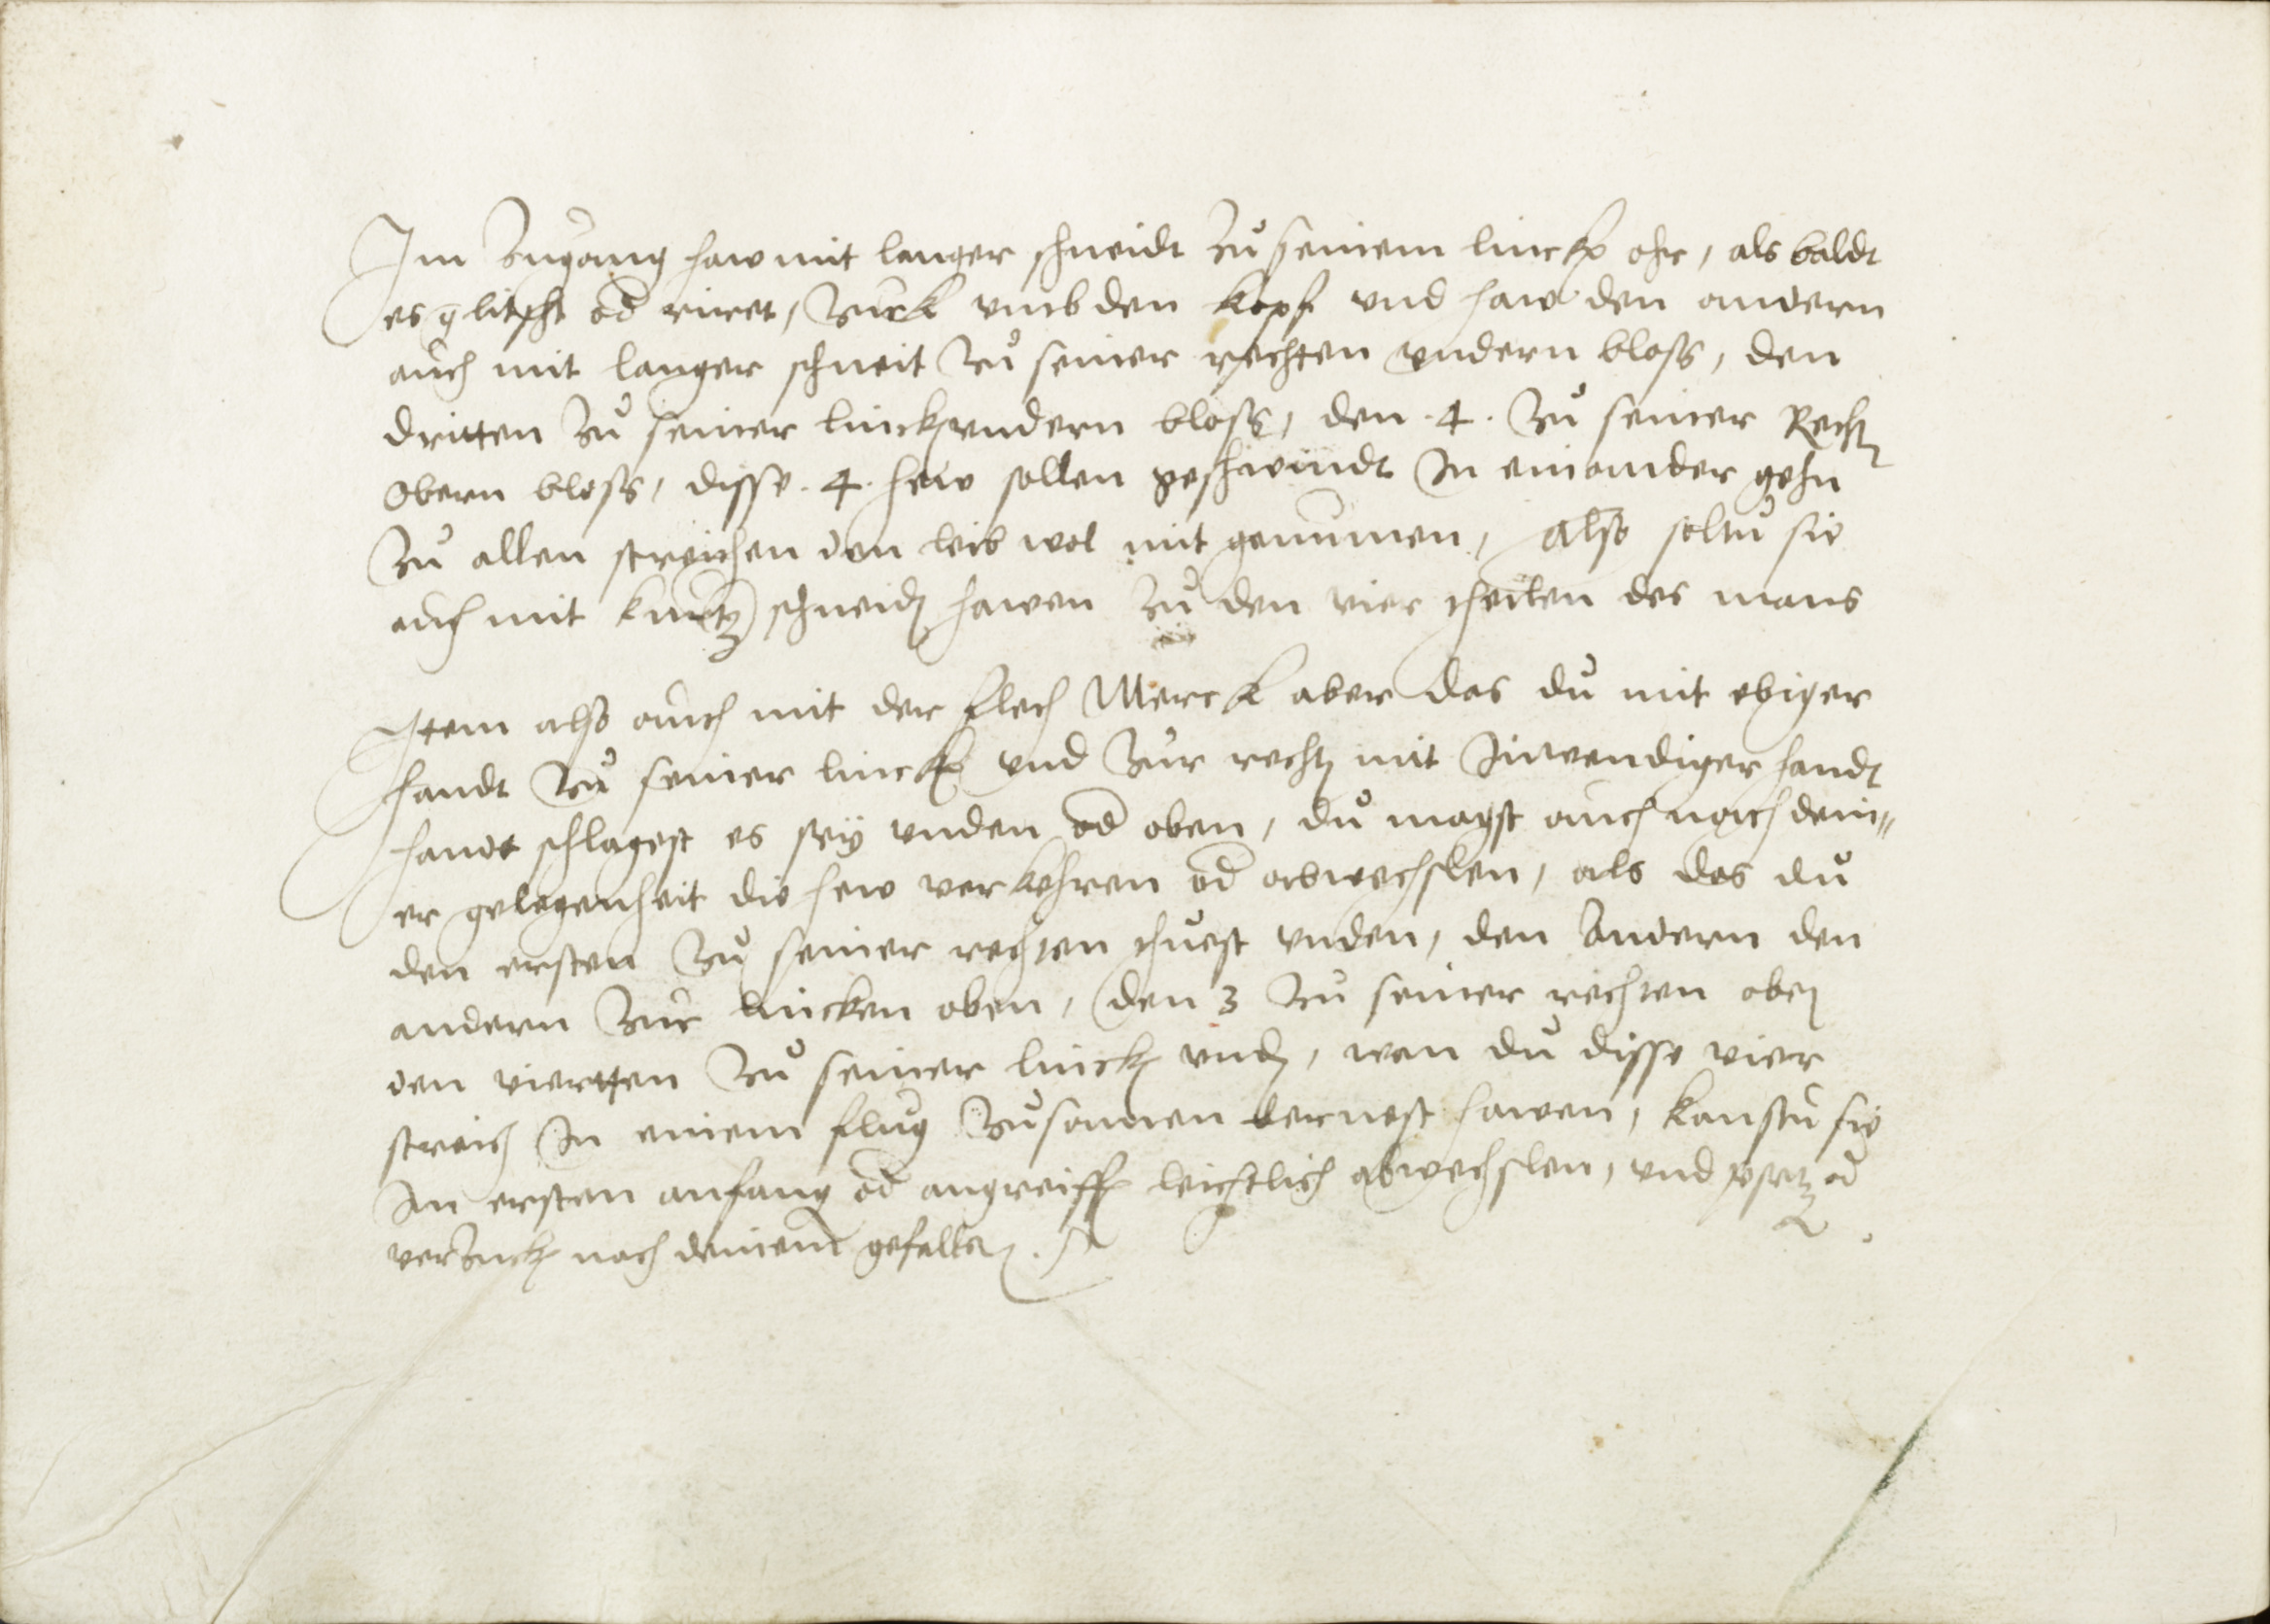 Im Zugang haw mit langer schneidt zů seinem linckē ohr, als baldt
es glitscht od rüret, zuck vmb den kopf vnd haw den andern
auch mit langer schneit zů seiner rechten vndern bloss, den
dritten zů seiner linckē vndern bloss, den .4. zů seiner Rechtē
Obern bloss, disse .4. hew sollen geschwindt In einander gehn
zů allen streichen den leib wol mit genummen, Also soltu sie
auch mit kurtzē schneidē hawen zů den vier theilen des mans
Item also auch mit der flech Merck aber das du mit ebiger
handt zů seiner linckē vnd zur rechtē mit Inwendiger handt
handt schlagest es sey vnden od oben, dů magst auch nach dein„
er gelegenheit die hew verkehren od abwechslen, als das dů
den ersten zů seiner rechten thuest vnden, den Andern den
andern zur lincken oben, den 3 zů seiner rechten obē
den viertten zů seiner linckē vndē, wan dů disse vier
streich In einem flug zůsamen lernest hawen, kanstu sie
Im ersten anfang od angreiffē leichtlich abwechslen, vnd od
verzuckē nach deinem gefallē.